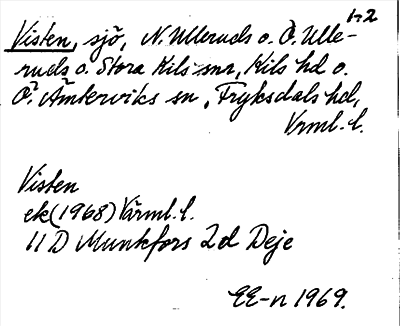 1-2
Visten, sjö, N. Ulleruds o. Ö. Ulle-
ruds o. Stora Kils snr, Kils hd o.
Ö. Ämterviks sn, Fryksdals hd,
Vrml. l.
Visten
ek (1968) Värml. l.
11 D Munkfors 2d Deje
EE-n 1969.